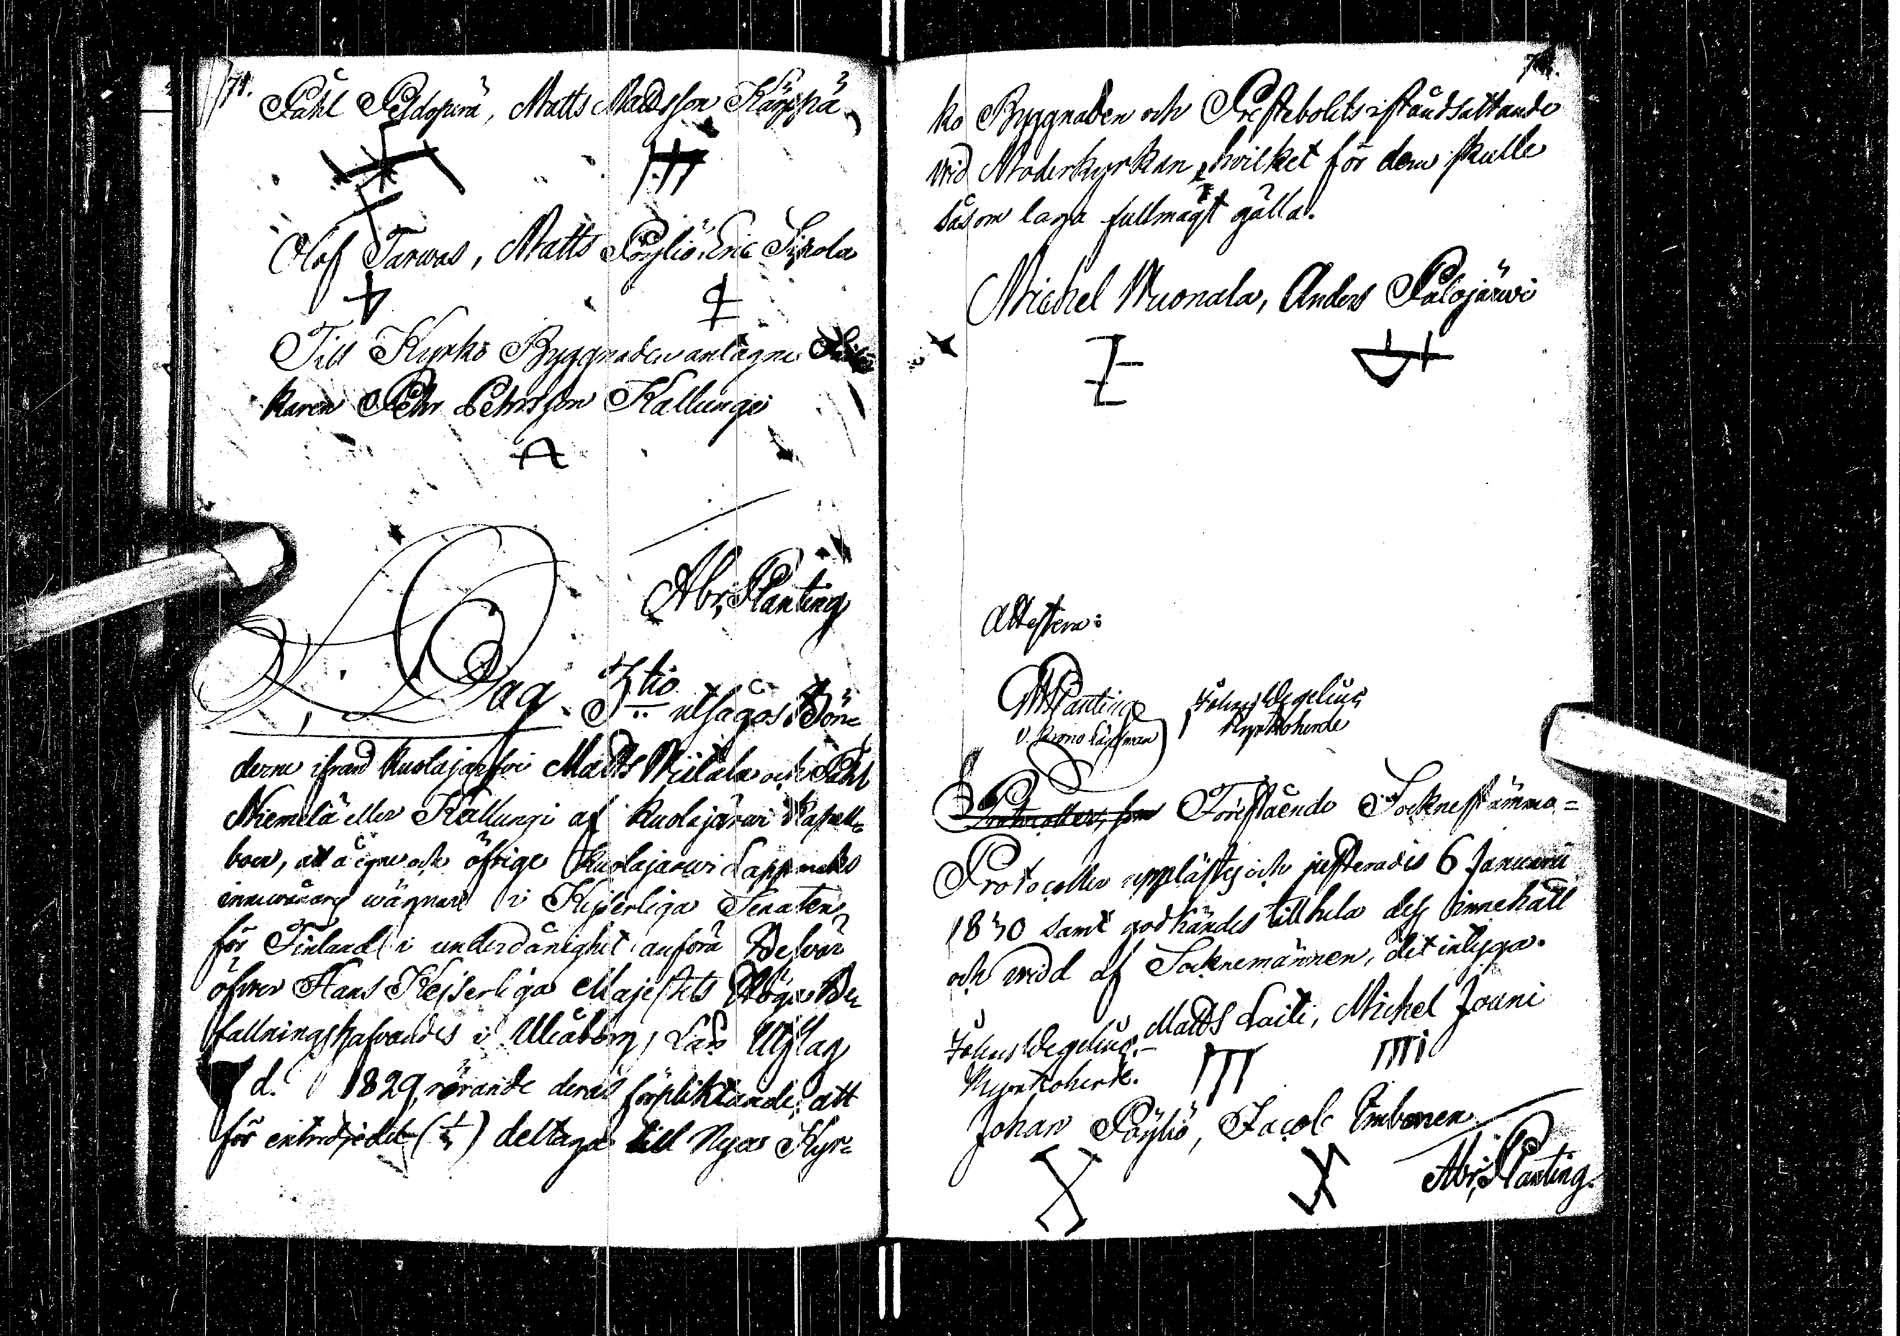 71.
Påhl Peldoperä, Matts Mattsson Kärpä
Olof Tarwas, Matts Pöyliö, Eric Sipola
Till Kyrko Byggnaden antagne
karen Pehr Pehrsson Kallungi
Abr. Planting
Dag.
3tio utsågos Bön=
derne ifrån Kuolajärfvi Matts Niilala och Påhl
Niemelä eller Kallungi af Kuolajärwi Kapell=
boer, att å egne och öfrige Kuolajarwi Lappmarks
innevånares wägnar i Kejserliga Senaten
för Finland i underdånighet anföra Beswär
öfwer Hans Kejserliga Majestets Höga Be=
fallningshafvandes i Uleåborgs Län Utslag
d. 1829, rörande deras förpliktande, att
för entredjedel (1/3) deltaga till Nya Kyr=
ko Byggnaden och Prestebolets iståndsättande
wid Moderkyrkan, hvilket för dem skulle
såsom laga fullmagt gälla.
Michel Wuonala, Anders Palojärwi
Attestera:
Planting
v. Krono Länsman
Johan Wegelius
Kyrkoherde
Protocollet, som Förestående Sockne stämmo=
Protocoller upplästes och justerades 6 Januarii
1830 samt godkändes till hela dess innehåll
och wid af Socknemännen, det intyga.
Johan Wegelius. Matts Laiti, Michel Jouni
Kyrkoherde.
Johan Pöyliö, Jacob Imbonen
Abr. Planting.